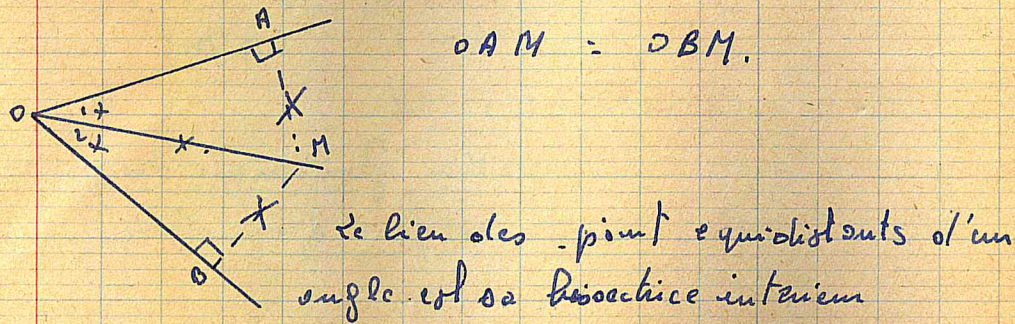 A
OAM = OBM.
O
1
2
M
B
Le lieu des point equidistants d'un
angle est sa bissectrice interieur